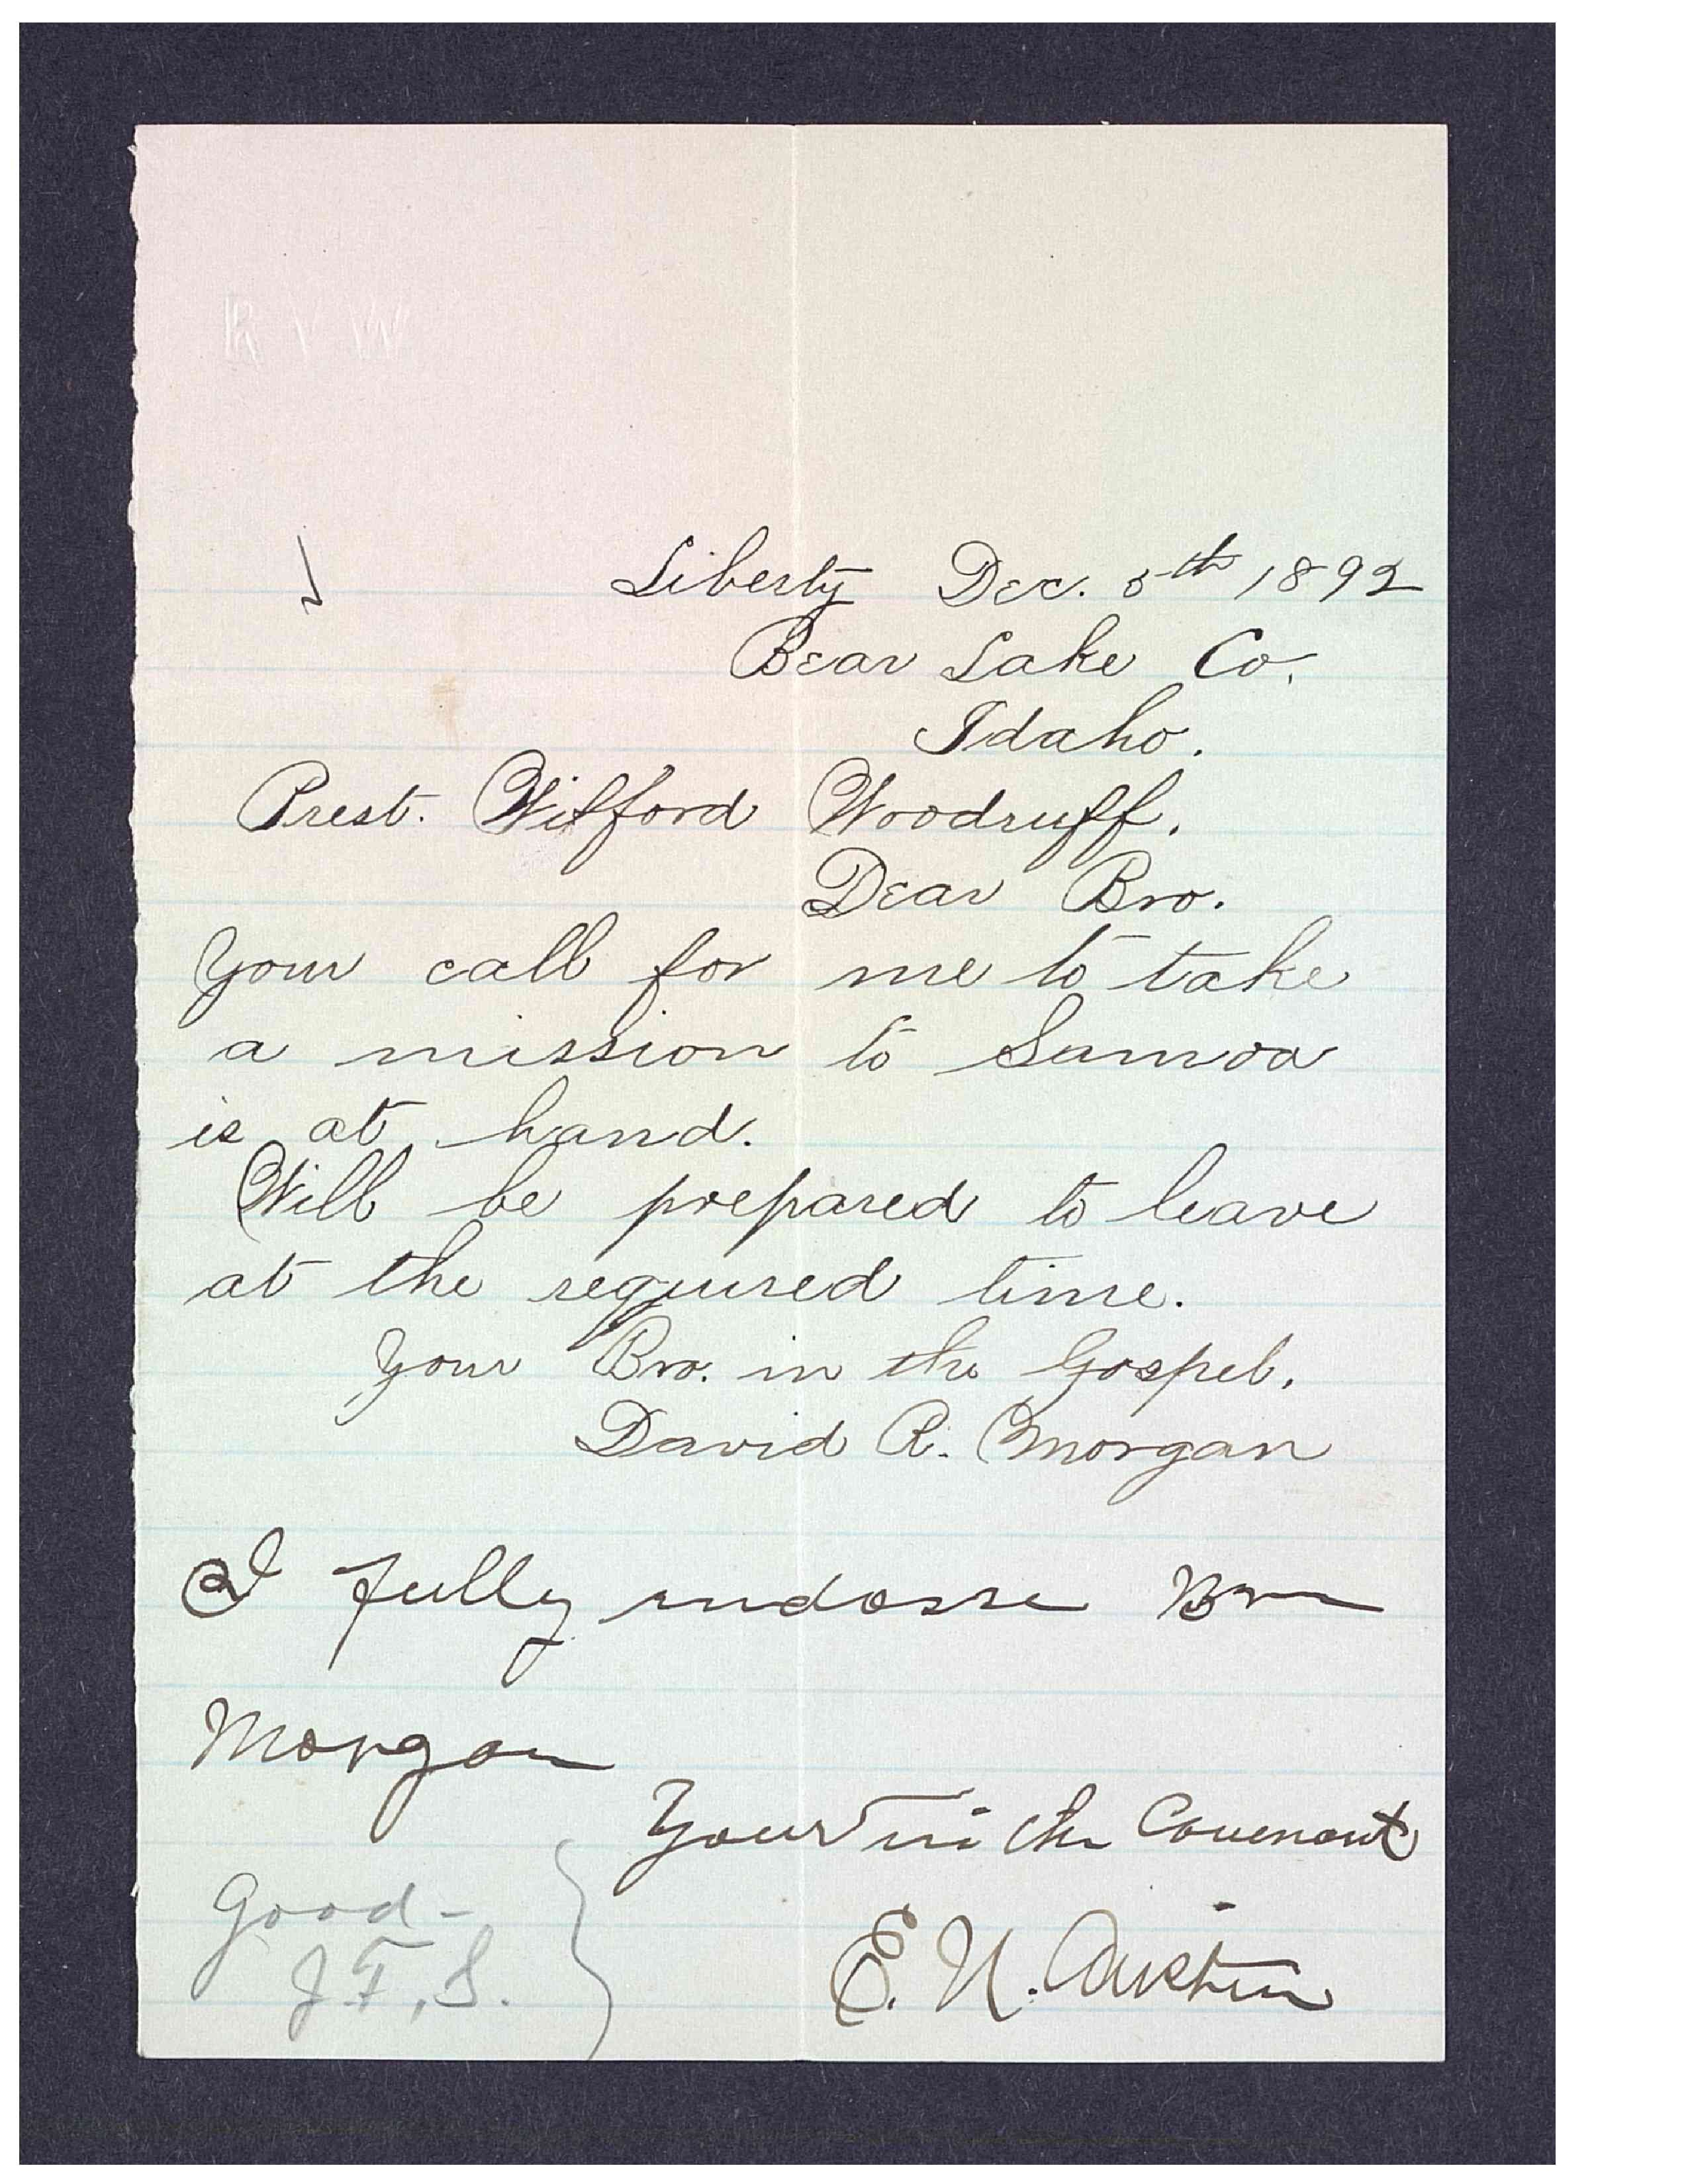 Liberty Dec. 5th 1892
Bear Lake Co.
Idaho.
Prest. Wilford Woodruff.
Dear Bro.
Your call for me to take
a mission to Samoa
is at hand.
Will be prepared to leave
at the required time.
Your Bro. in the Gospel.
David R. Morgan
I fully endorse Bro
Morgan
Your in the Covenant
E. N. Austin
Good -
J. F. S.